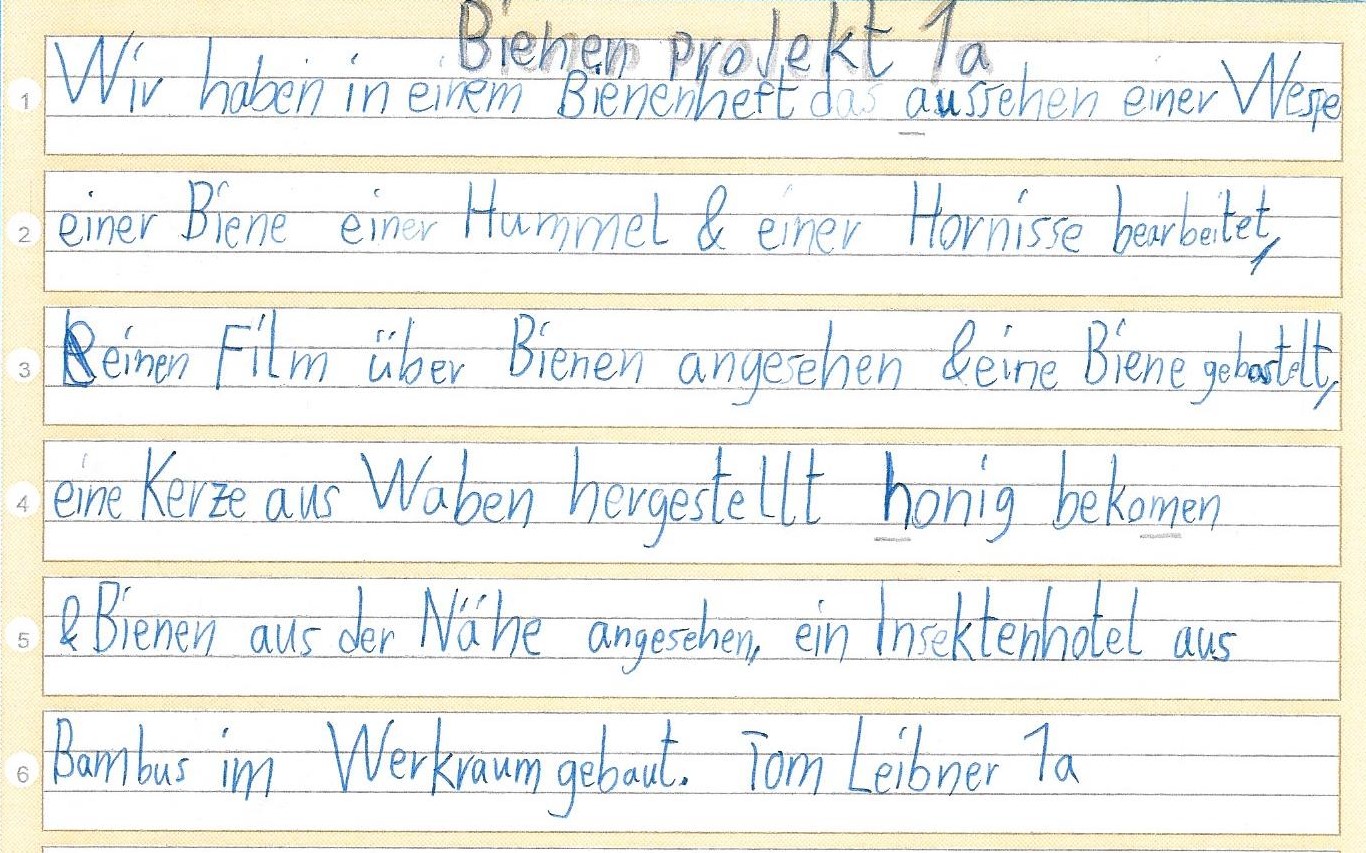 Bienen projekt 1a
1 Wir haben in einem Bienenheft das aussehen einer Wespe
2 einer Biene einer Hummel & einer Hornisse bearbeitet,
3 einen Film über Bienen angesehen & eine Biene gebastelt,
4 eine Kerze aus Waben hergestellt honig bekomen
5 & Bienen aus der Nähe angesehen, ein Insektenhotel aus
6 Bambus im Werkraum gebaut. Tom Leibner 1a